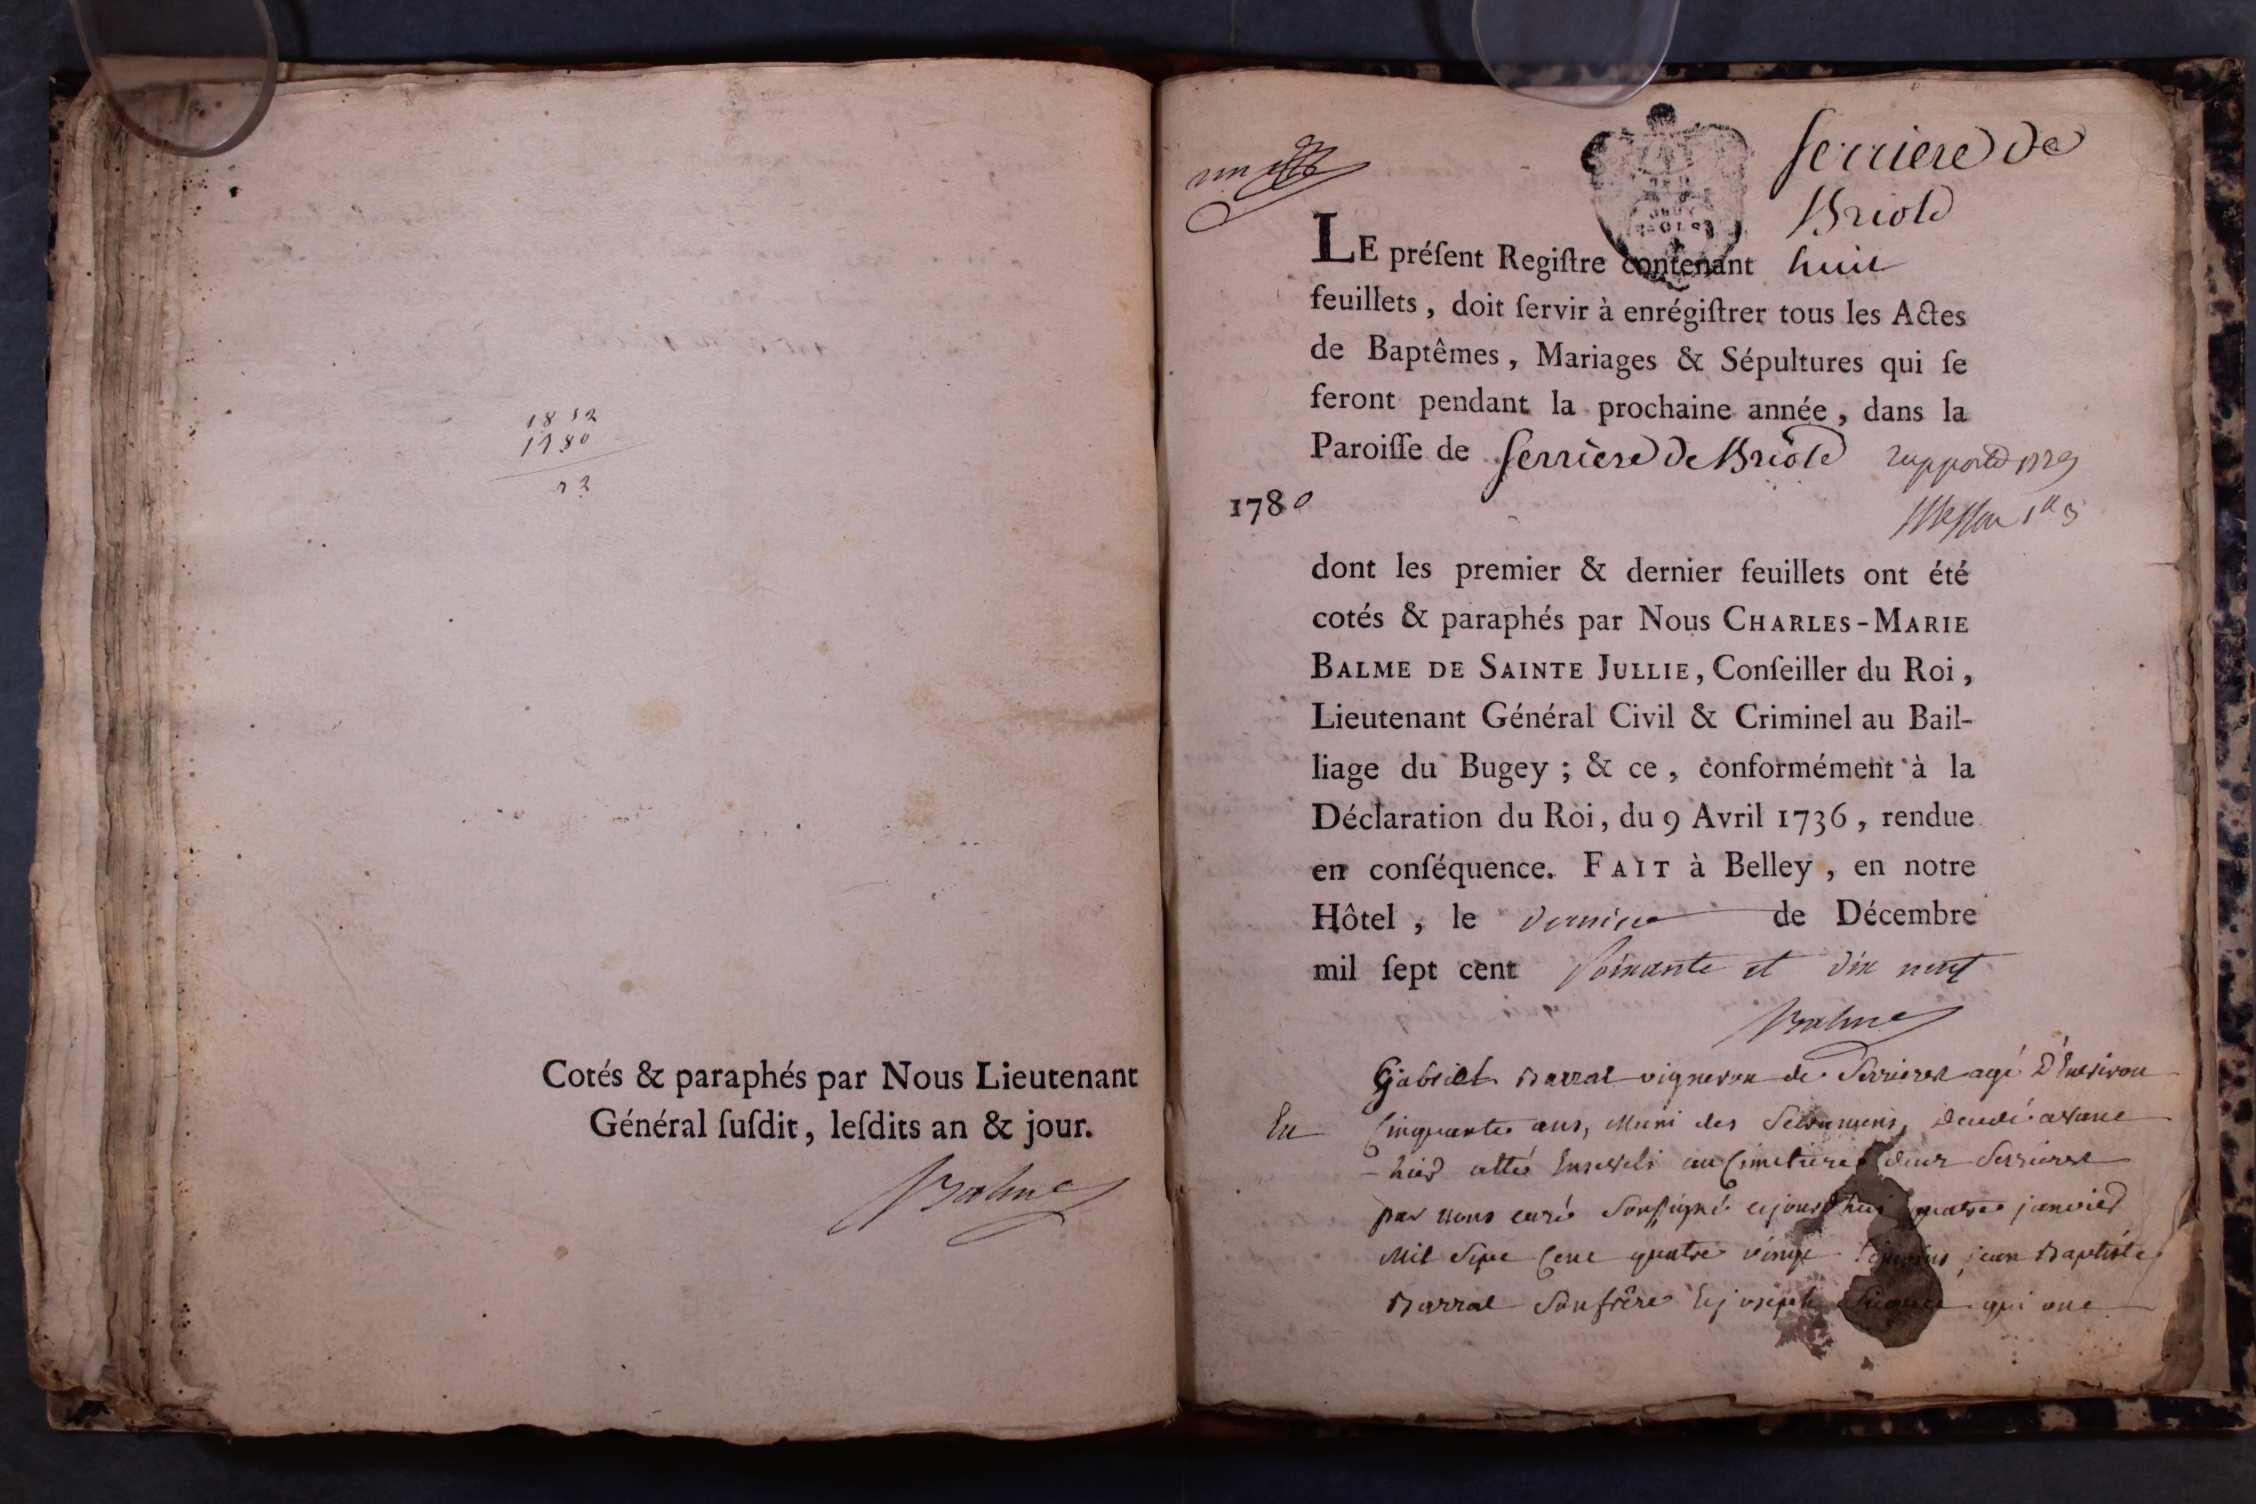 1852
1780
72
Cotés & paraphés par Nous Lieutenant
Général ſuſdit, leſdits an & jour.
Balme
un
Serriere de
Briord
LE préſent Regiſtre contenant huit
feuillets, doit ſervir à enrégiſtrer tous les Actes
de Baptêmes, Mariages & Sépultures qui ſe
feront pendant la prochaine année, dans la
Paroiſſe de Serrière de Briord
1780
dont les premier & dernier feuillets ont été
cotés & paraphés par Nous CHARLES-MARIE
BALME DE SAINTE JULLIE, Conſeiller du Roi,
Lieutenant Général Civil & Criminel au Bail-
liage du Bugey ; & ce, conformément à la
Déclaration du Roi, du 9 Avril 1736, rendue
en conſéquence. FAIT à Belley, en notre
Hôtel, le dernier de Décembre
mil ſept cent Soixante et dix neuf
Balme
Gabriel Barral vigneron de Serrieres agé D'Environ
Cinquante ans, Muni des Sacremens, décédé avant
hier a été Enseveli au Cimetiere de Serrieres
par nous curé Soussigné cejourdhui quatre janvier
Mil Sept Cent quatre vingt Témoins jean Baptiste
Barral Son frère Et joseph qui ont